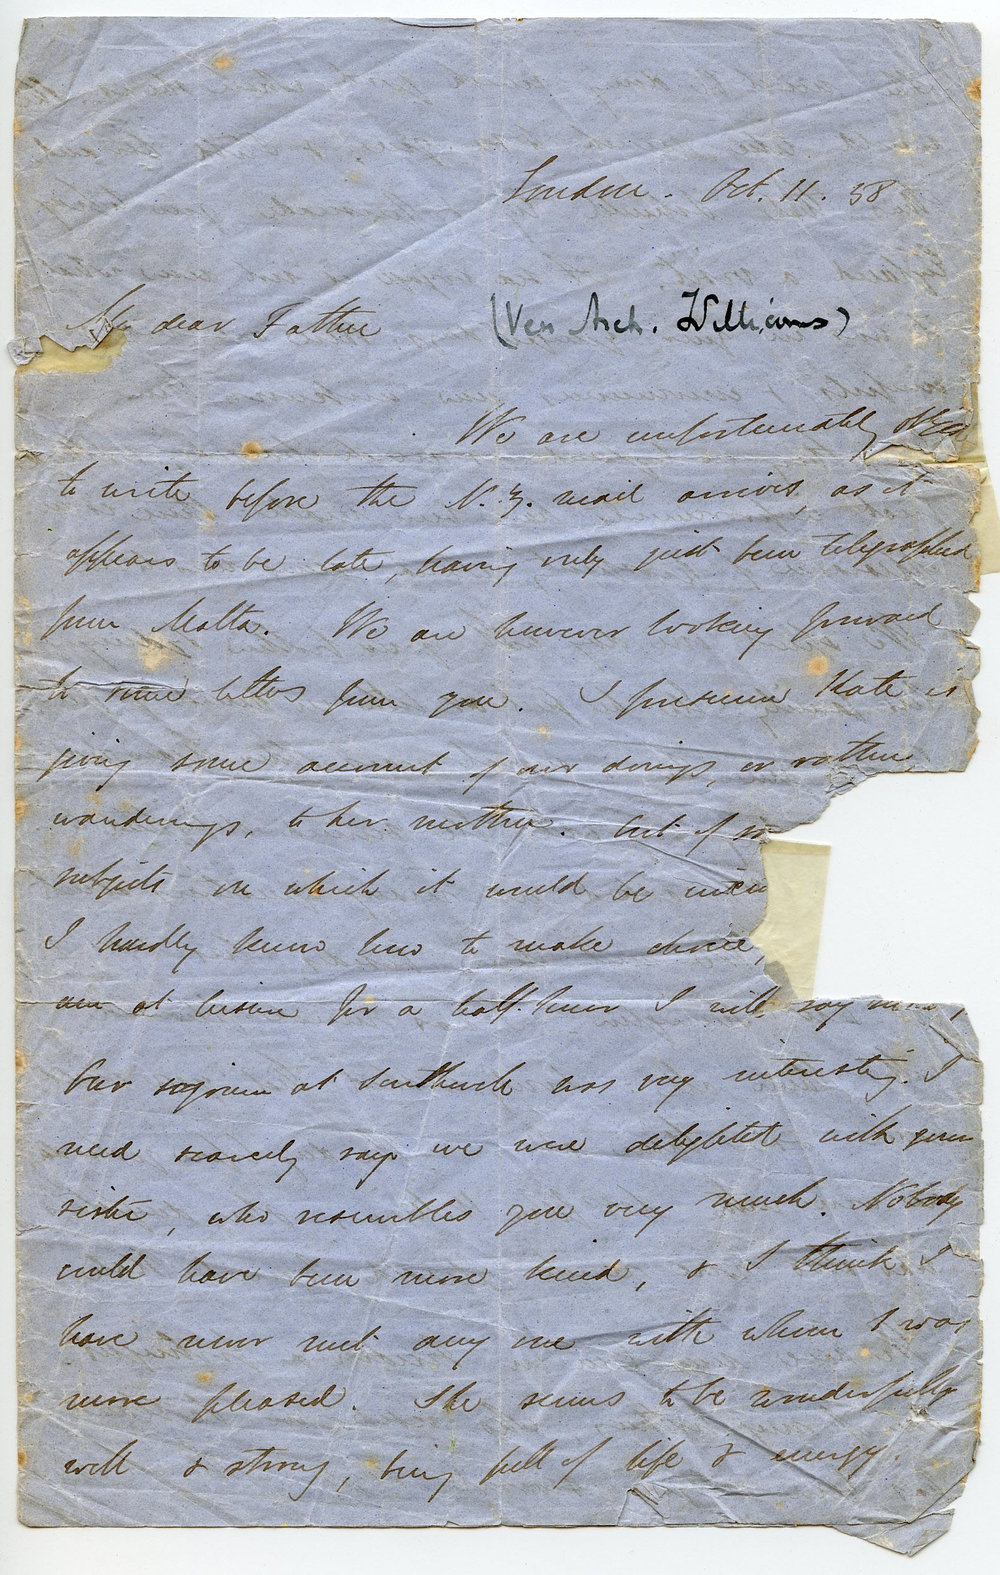 London - Oct. 11. 58
My dear Father (Ven Arch. Williams)
We are unfortunately
to write before the N.Z. mail arrives, as it
appears to be late, having only just been telegraphed
from Malta. We are however looking forward
to some letters from you. I presume Kate is
giving some account of our doings, or rather
wanderings, to her mother. but of
subjects on which it would be
I hardly know how to make choice,
am at leisure for a half-hour I will say
Our sojourn at Southwell was very interesting. I
need scarcely say we were delighted with your
sister, who resembles you very much. Nobody
could have been more kind, & I think I
have never met any one with whom I was
more pleased. She seems to be wonderfully
well & strong, being full of life & energy.